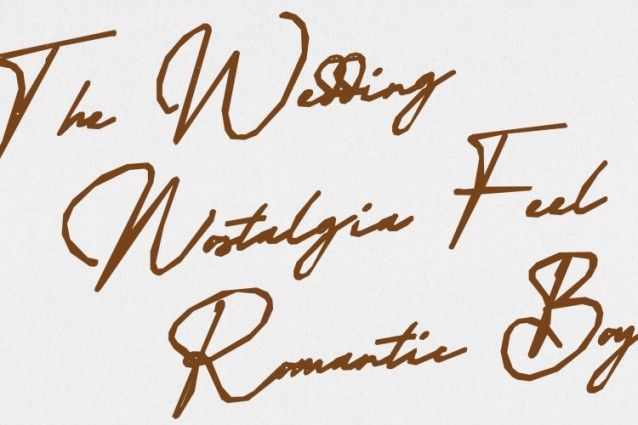 The Wedding
Nostalgia Feel
Romantic Boy